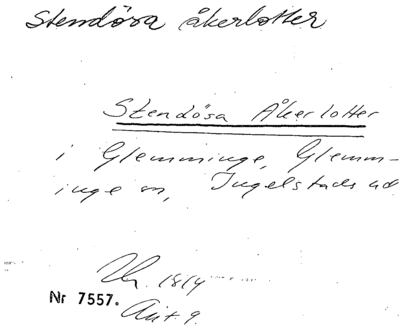 Stendösa åkerlotter
Stendösa Åkerlotter
i Glemminge, Glemm-
inge sn, Ingelstads hd
1814
Nr 7557.
Akt 9.